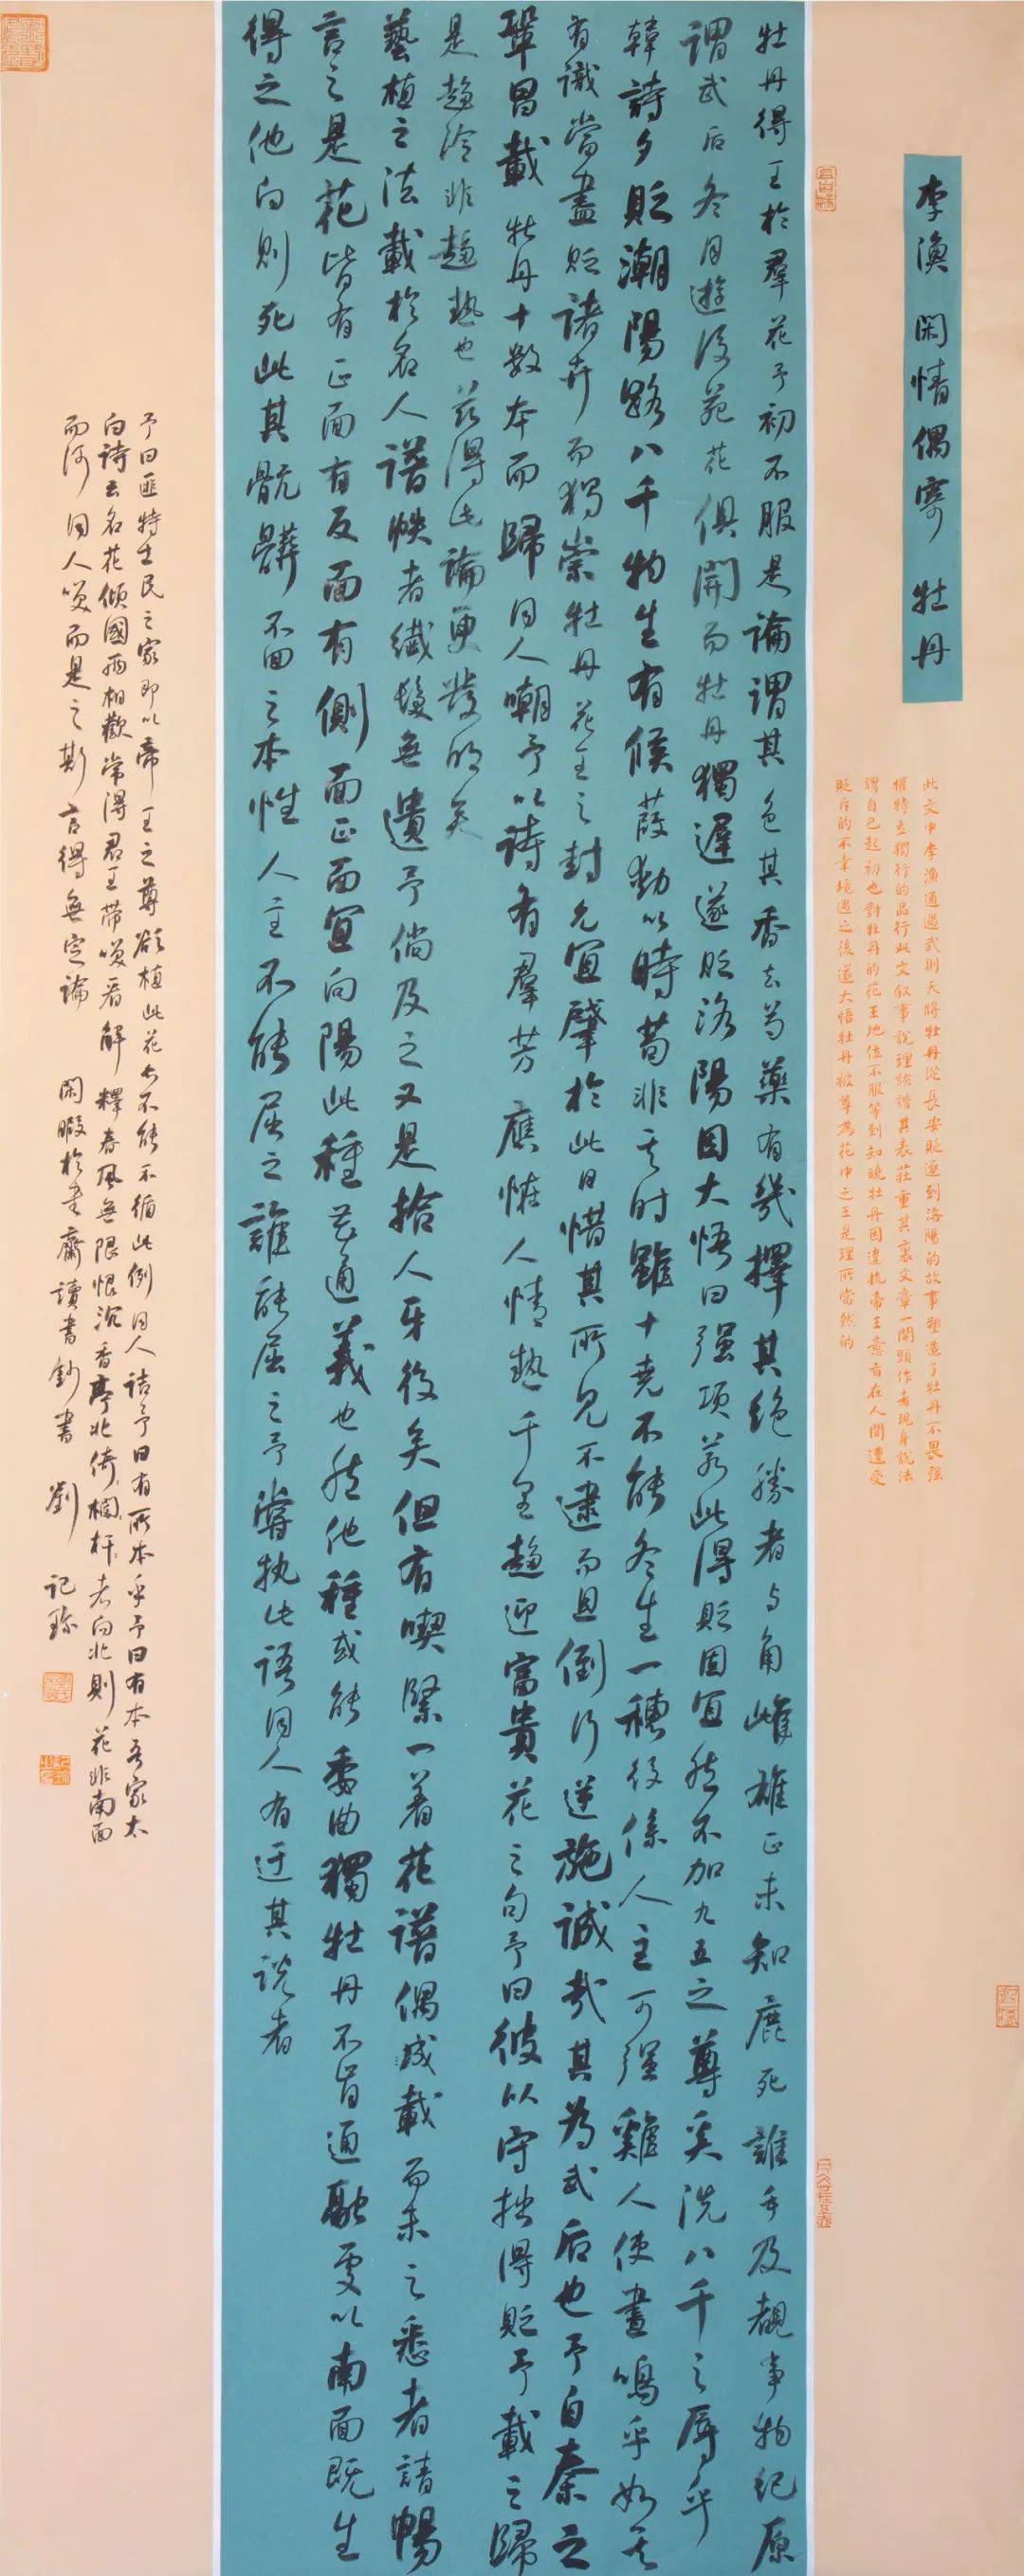 李漁 閑情偶寄 牡丹
此文中李漁通過武則天將牡丹從長安貶逐到洛陽的故事塑造了牡丹不畏强
權特立獨行的品行此文叙事說理詼諧其表莊重其裏文章一開頭作者現身說法
謂自己起初也對牡丹的花王地位不服等到知曉牡丹因違抗帝王意旨在人間遭受
貶斥的不幸境遇之後遂大悟牡丹被尊為花中之王是理所當然的
牡丹得王於羣花予初不服是論謂其色其香去芍藥有幾擇其絶勝者与角雌雄正未知鹿死誰手及覩事物纪原
謂武后冬月遊後苑花俱開而牡丹獨遲遂貶洛陽因大悟曰强項若此得貶固宜然不加九五之尊奚洗八千之辱乎
韓詩夕貶潮陽路八千物生有候葭動以時苟非其时雖十尧不能冬生一穗後係人主可强鷄人使晝鳴乎如其
有識當盡貶諸卉而獨崇牡丹花王之封允宜肇於此日惜其所见不逮而且倒行逆施誠哉其為武后也予自秦之
鞏昌載牡丹十數本而歸同人嘲予以詩有羣芳應怪人情熱千里趨迎富貴花之句予曰彼以守拙得貶予載之歸
是趨冷非趨熱也兹得此論更發明矣
藝植之法載於名人譜帙者纖髮無遺予倘及之又是拾人牙後矣但有喫緊一着花譜偶成載而未之悉者請暢
言之是花皆有正面有反面有側面正面宜向陽此種花通義也然他種或能委曲獨牡丹不肯通融處以南面既生
得之他向則死此其骯髒不回之本性人主不能屈之誰能屈之予嘗執此語同人有迂其説者
予曰匪特士民之家即以帝王之尊欲植此花亦不能不循此例同人詰予曰有所本乎予曰有本吾家太
白詩云名花傾國兩相歡常得君王帶笑看解釋春風無限恨沉香亭北倚欄杆者向北則花非南面
而何同人笑而是之斯言得無定論 閑暇於書齋讀書鈔書 劉記珍